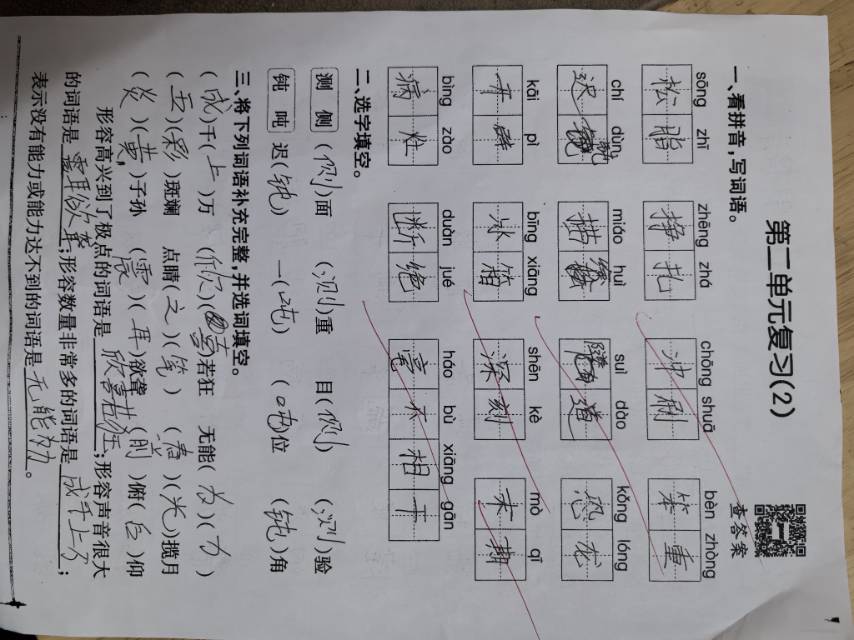 第二单元复习(2)
查答案
一、看拼音,写词语。
sōng zhī zhēng zhá chōng shuā bèn zhòng
松脂 挣扎 冲刷 笨重
chí dùn miáo huì suì dào kǒng lóng
迟钝 描绘 隧道 恐龙
kāi pì bīng xiāng shēn kè mò qī
开辟 冰箱 深刻 末期
bìng zào duàn jué háo bù xiāng gān
病灶 断绝 毫不相干
二、选字填空。
测 侧 (侧)面 (测)重 目(侧) (测)验
钝 吨 迟(钝) 一(吨) (吨)位 (钝)角
三、将下列词语补充完整,并选词填空。
(成)千(上)万 (欣)(喜)若狂 无能(为)(力)
(五)(彩)斑斓 点睛(之)(笔) (春)(光)揽月
(炎)(黄)子孙 (震)(耳)欲聋 (前)俯(后)仰
形容高兴到了极点的词语是欣喜若狂;形容声音很大
的词语是震耳欲聋;形容数量非常多的词语是成千上万;
表示没有能力或能力达不到的词语是无能为力。